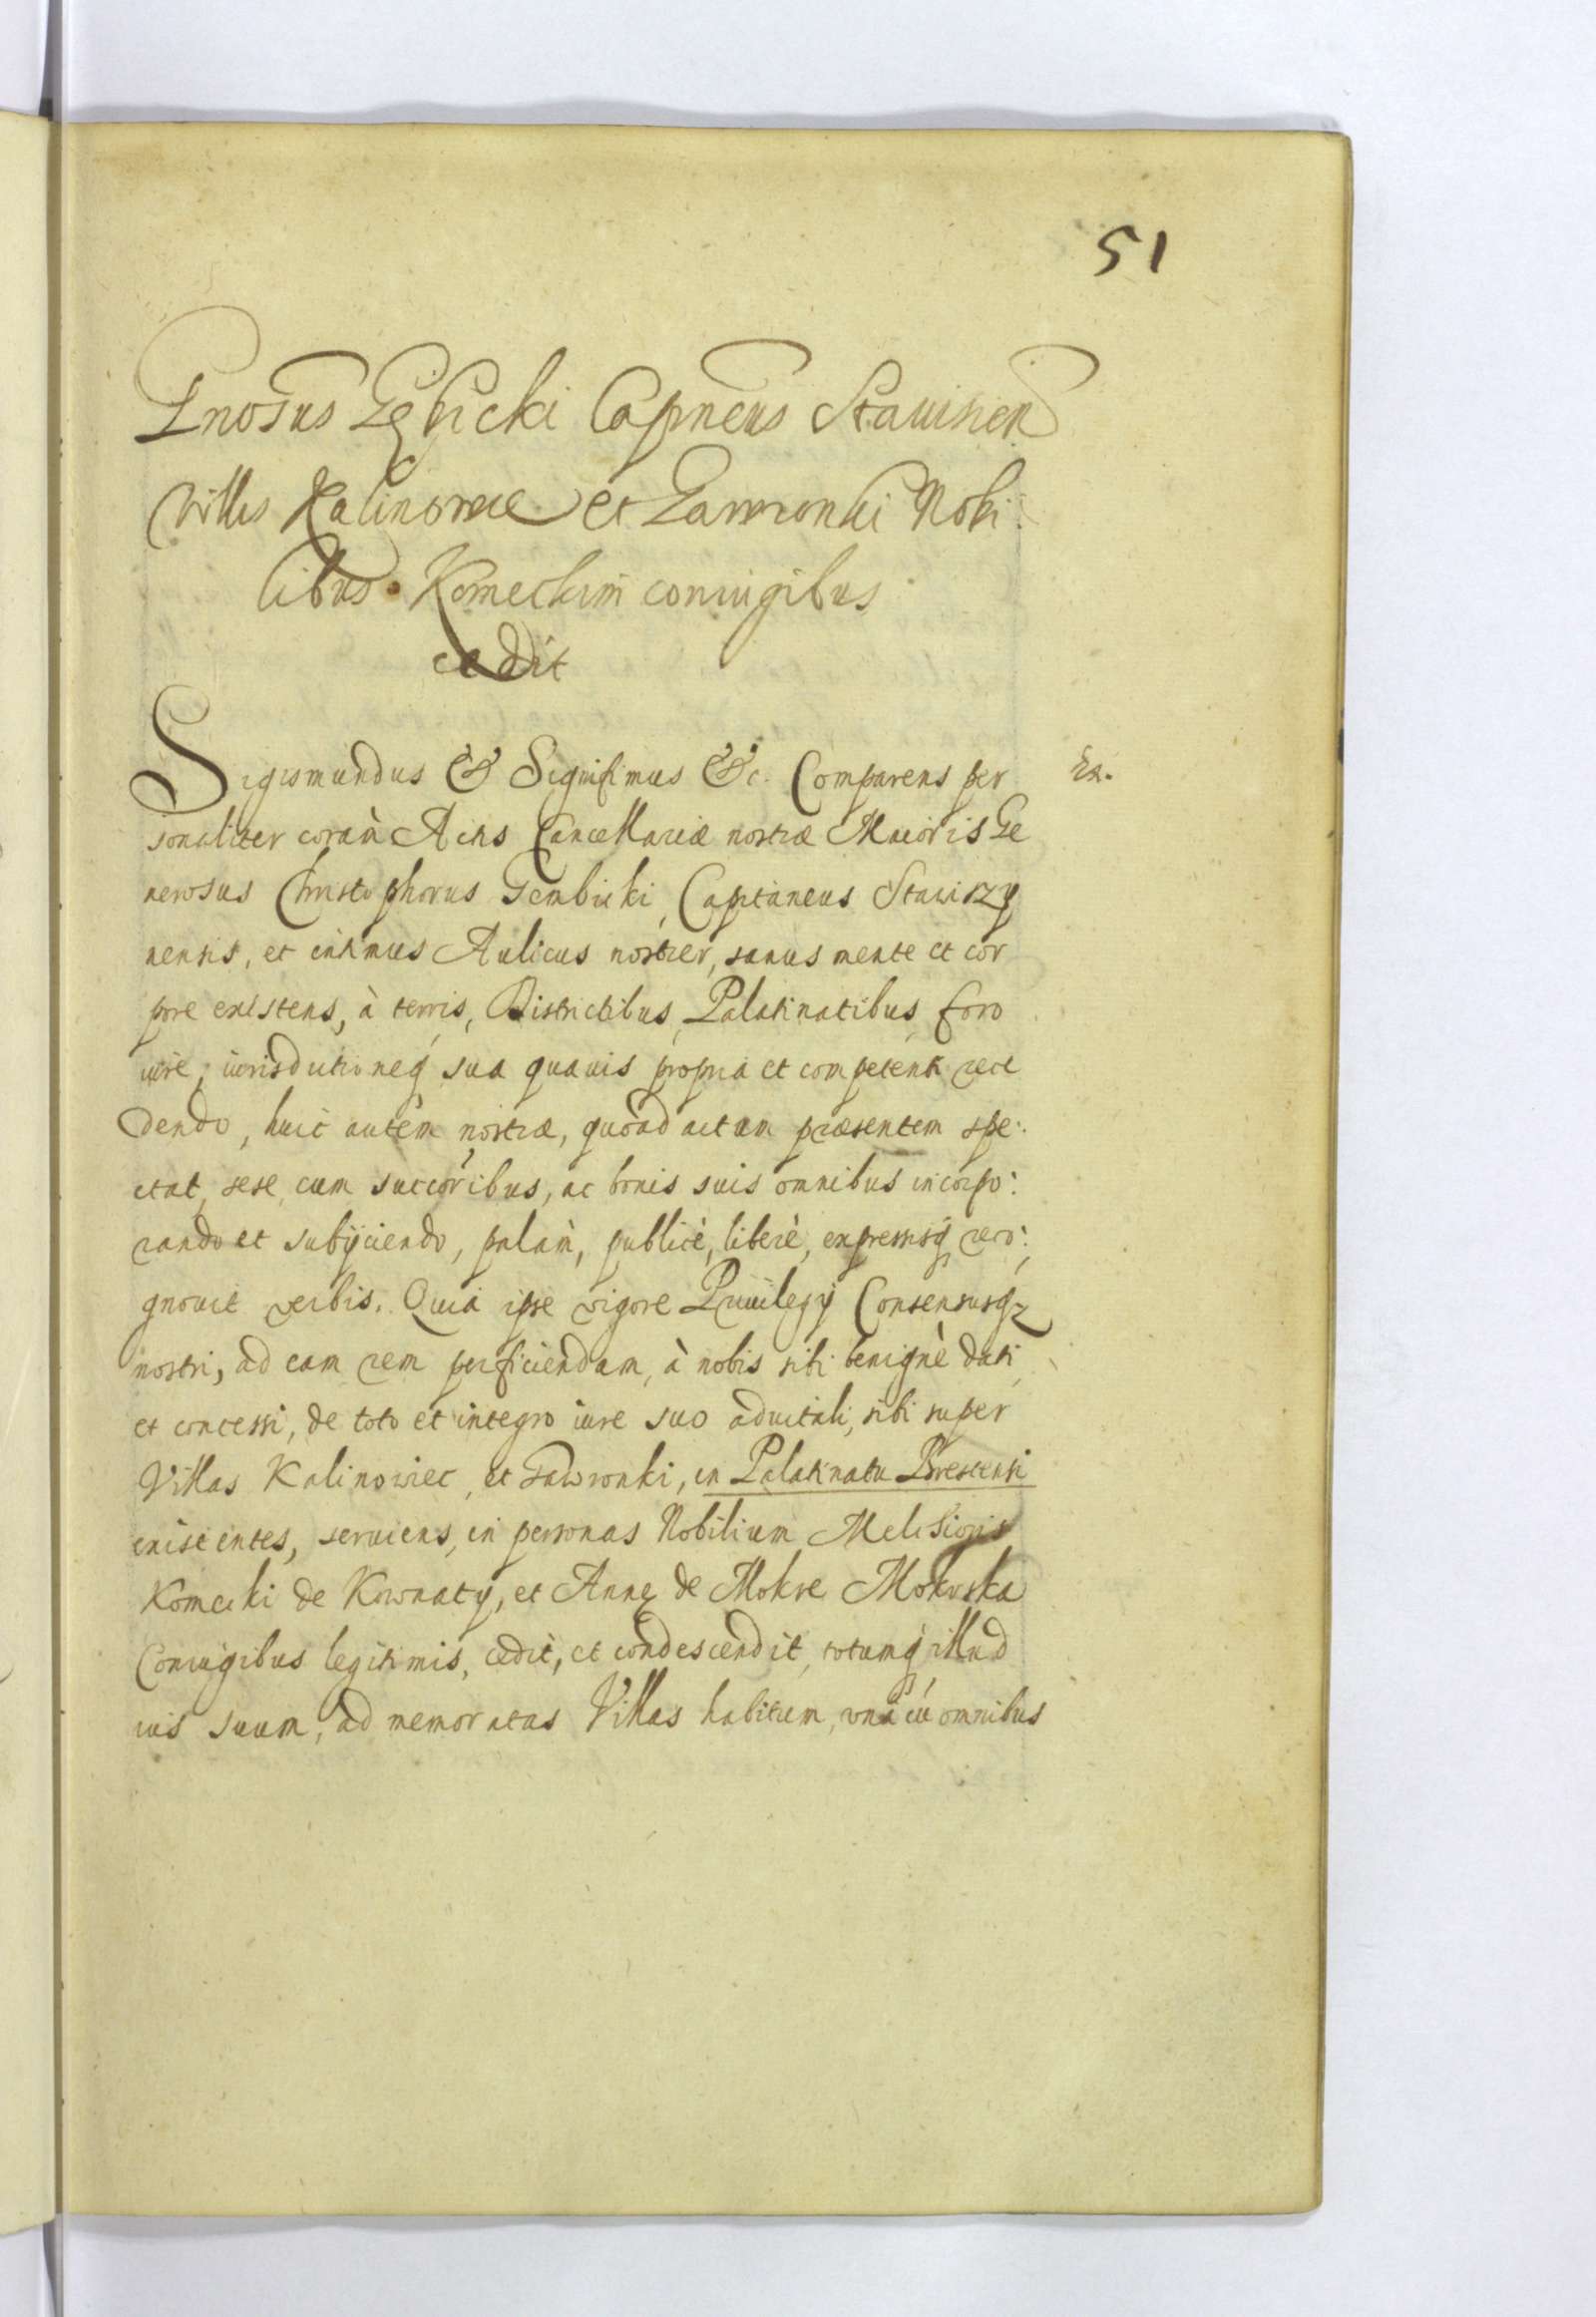 51
Gnosus Gębicki Capneus Stauisien
Villis Kalinowiec et Gawronki Nobi
libus Komeckim coniugibus
cedit
Sigismundus & Significamus &c. Comparens per
Ex.
sonaliter coram Actis Cancellariæ nostræ Maioris Ge
nerosus Christophorus Gembicki, Capitaneus Stawiszy
nensis, et intimus Aulicus noster, sanus mente et cor
pore existens, à terris, Districtibus, Palatinatibus, foro
iure, iurisdictioneq sua quauis propria et competenti rece
dendo, huic autem nostræ, quoad actum præsentem spe:
ctat, sese, cum succoribus, ac bonis suis omnibus incorpo:
rando et subijciendo, palàm, publicè, liberè, expressisq reco:
gnouit verbis. Quia ipse vigore Priuilegij Consensusq
nostri, ad eam rem perficiendam, à nobis sibi benignè dati
et concessi, de toto et integro iure suo aduitali, sibi super
Villas Kalinowiec, et Gawronki, in Palatinatu Brestensi
existentes, seruiens, in personas Nobilium Melchioris
Komecki de Kownaty, et Annę de Mokre Mokrska
Coniugibus legitimis, cedit, et condescendit, totumq illud
ius suum, ad memoratas Villas habitum, unà cū omnibus